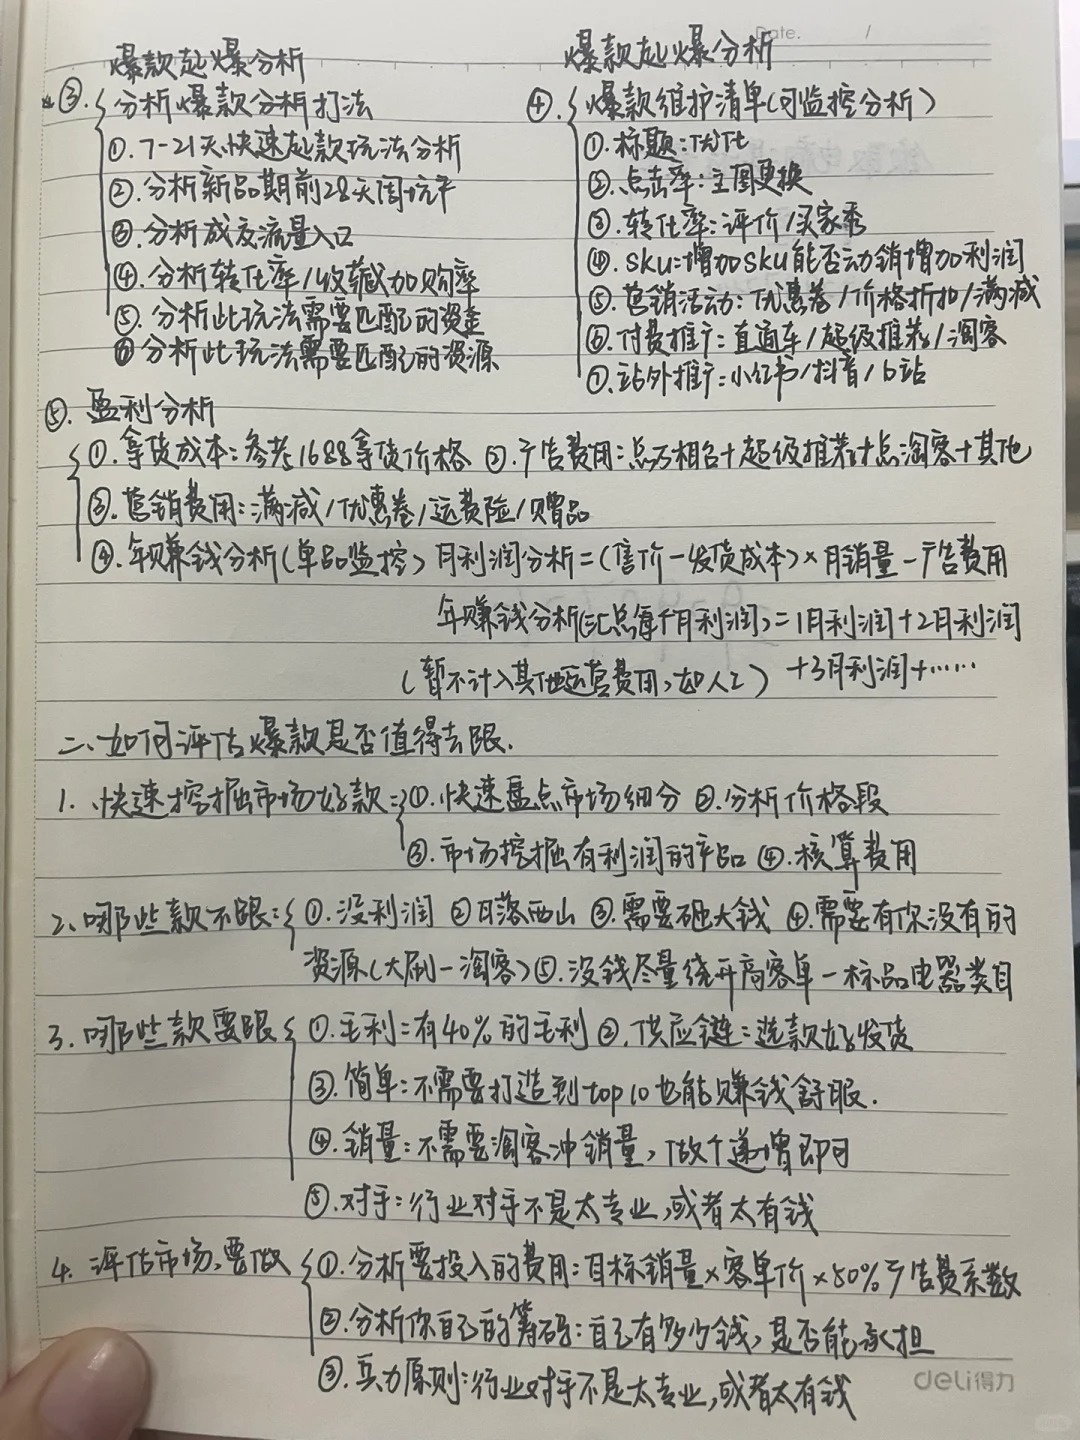 Date. /
爆款起爆分析
③. 分析爆款分析打法
①. 7-21天快速起款玩法分析
②. 分析新品期前28天周坑产
③. 分析成交流量入口
④. 分析转化率/收藏加购率
⑤. 分析此玩法需要匹配的资金
⑥ 分析此玩法需要匹配的资源
爆款起爆分析
④. 爆款维护清单(可监控分析)
①. 标题:优化
②. 点击率:主图更换
③. 转化率:评价/买家秀
④. SKU:增加SKU能否动销增加利润
⑤. 营销活动:优惠卷/价格折扣/满减
⑥. 付费推广:直通车/超级推荐/淘客
⑦. 站外推广:小红书/抖音/b站
⑤. 盈利分析
①. 拿货成本:参考1688拿货价格 ②. 广告费用:点万相台+超级推荐+点淘客+其他
③. 营销费用:满减/优惠卷/运费险/赠品
④. 年赚钱分析(单品监控) 月利润分析=(售价-发货成本)×月销量-广告费用
年赚钱分析(汇总每个月利润)=1月利润+2月利润
(暂不计入其他运营费用,如人工) +3月利润+……
二、如何评估爆款是否值得去跟.
1. 快速挖掘市场好款: ①. 快速盘点市场细分 ②. 分析价格段
③. 市场挖掘有利润的产品 ④. 核算费用
2. 哪些款不跟: ①. 没利润 ②日落西山 ③. 需要砸大钱 ④. 需要有你没有的
资源(大刷-淘客) ⑤. 没钱尽量绕开高客单-标品电器类目
3. 哪些款要跟 ①. 毛利:有40%的毛利 ②. 供应链:选款好发货
③. 简单:不需要打造到top10也能赚钱舒服.
④. 销量:不需要淘客冲销量,做个递增即可
⑤. 对手:行业对手不是太专业,或者太有钱
4. 评估市场,要做 ①. 分析要投入的费用:目标销量×客单价×50%广告费系数
②. 分析你自己的筹码:自己有多少钱,是否能承担
③. 兵力原则:行业对手不是太专业,或者太有钱
deli得力